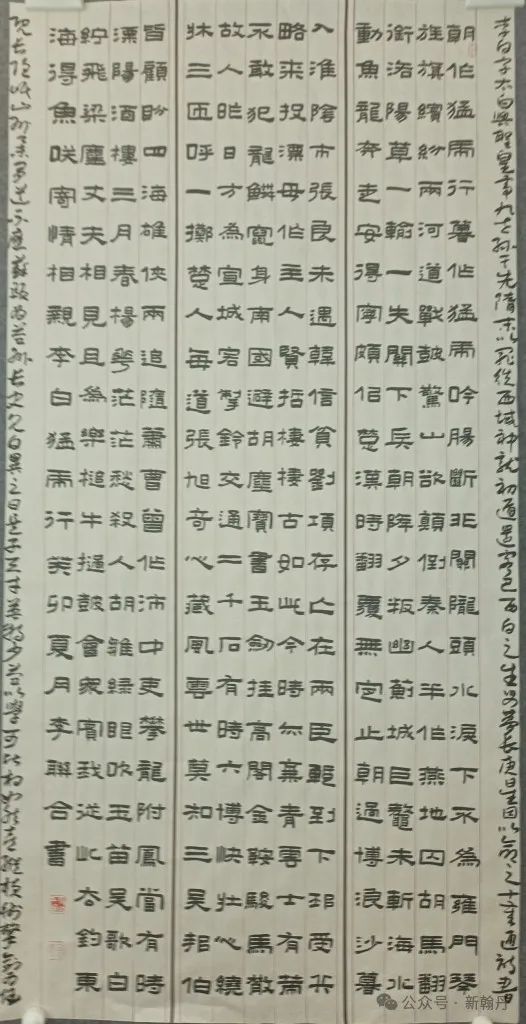 李白字太白興聖皇帝九世孫其先隋末以罪徙西域神龍初遁還客巴西白之生母夢長庚星因以命之十歲通詩書
朝作猛虎行暮作猛虎吟腸斷非關隴頭水淚下不為雍門琴
旌旗繽紛兩河道戰鼓驚山欲顛倒秦人半作燕地囚胡馬翻
銜洛陽草一輸一失關下兵朝降夕叛幽薊城巨鼇未斬海水
動魚龍奔走安得寧頗似楚漢時翻覆無定止朝過博浪沙暮
入淮陰市張良未遇韓信貧劉項存亡在兩臣暫到下邳受兵
略來投漂母作主人賢哲棲棲古如此今時亦棄青雲士有策
不敢犯龍鱗竄身南國避胡塵寶書玉劍挂高閣金鞍駿馬散
故人昨日方為宣城客掣鈴交通二千石有時六博快壯心繞
牀三匝呼一擲楚人每道張旭奇心藏風雲世莫知三吳邦伯
皆顧眄四海雄俠兩追隨蕭曹曾作沛中吏攀龍附鳳當有時
溧陽酒樓三月春楊花茫茫愁殺人胡雛綠眼吹玉笛吳歌白
紵飛梁塵丈夫相見且為樂槌牛撾鼓會眾賓我從此去釣東
海得魚咲寄情相親李白猛虎行癸卯夏月李聯合書
既長隱岷山州舉有道不應蘇頲為益州長史見白異之曰是子天才英特少益以學可比相如然喜縱橫術擊劍為任
公众号·新翰丹